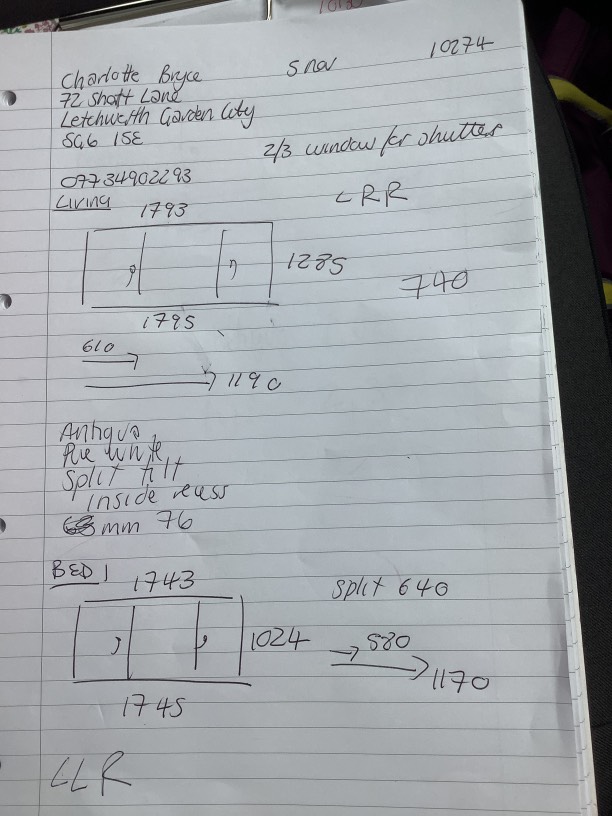 10274
Charlotte Bryce
72 Shott Lane
Letchworth Garden City
SG6 1SE
2/3 window for shutter
07734902293
Living
1793
LRR
1285
740
1795
610
1190
Antigua
Pure White
Split tilt
inside recess
mm 76
BED 1
1743
split 640
1024
580
1170
1745
LLR